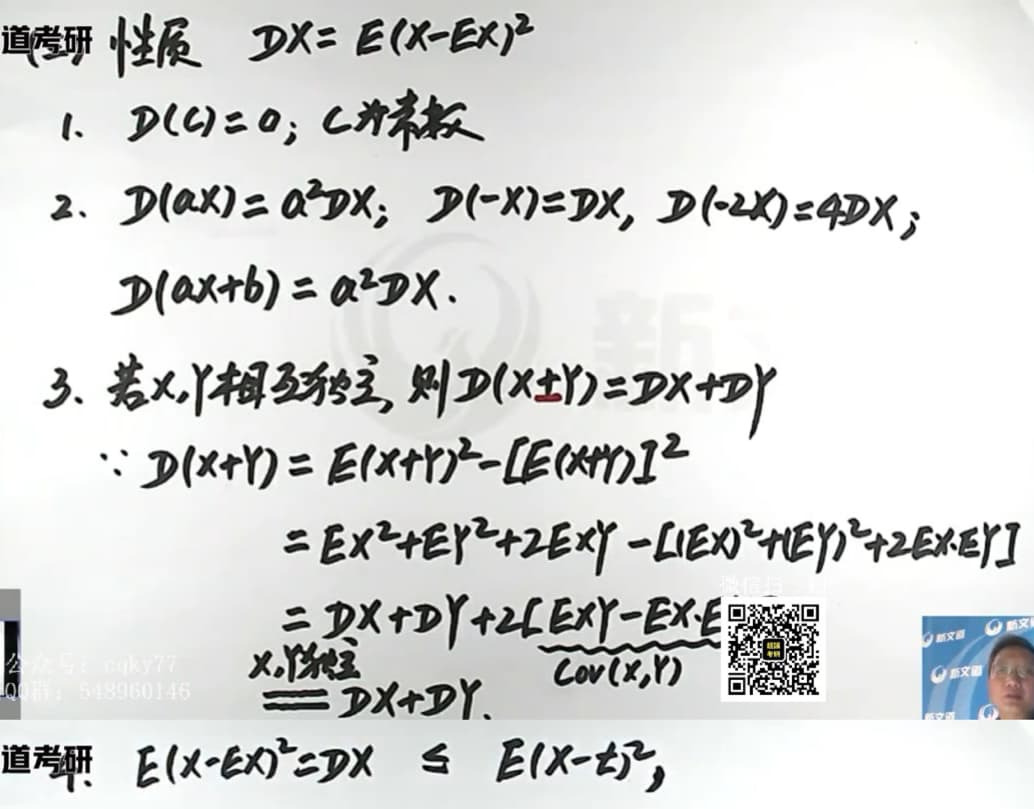 道考研
(二) 性质 DX = E(X-EX)²
1. D(C)=0; C为常数
2. D(aX)=a²DX; D(-X)=DX, D(-2X)=4DX;
D(aX+b)=a²DX.
3. 若X,Y相互独立, 则D(X±Y)=DX+DY
∵ D(X+Y) = E(X+Y)²-[E(X+Y)]²
= EX²+EY²+2EXY-[(EX)²+(EY)²+2EX·EY]
微信扫
= DX+DY+2[EXY-EX·E
Cov(X,Y)
X,Y独立
== DX+DY.
公众号: cqky77
QQ群: 548960146
新文道
新文道
新文道
新文道
道考研
4. E(X-EX)²=DX ≤ E(X-t)²,